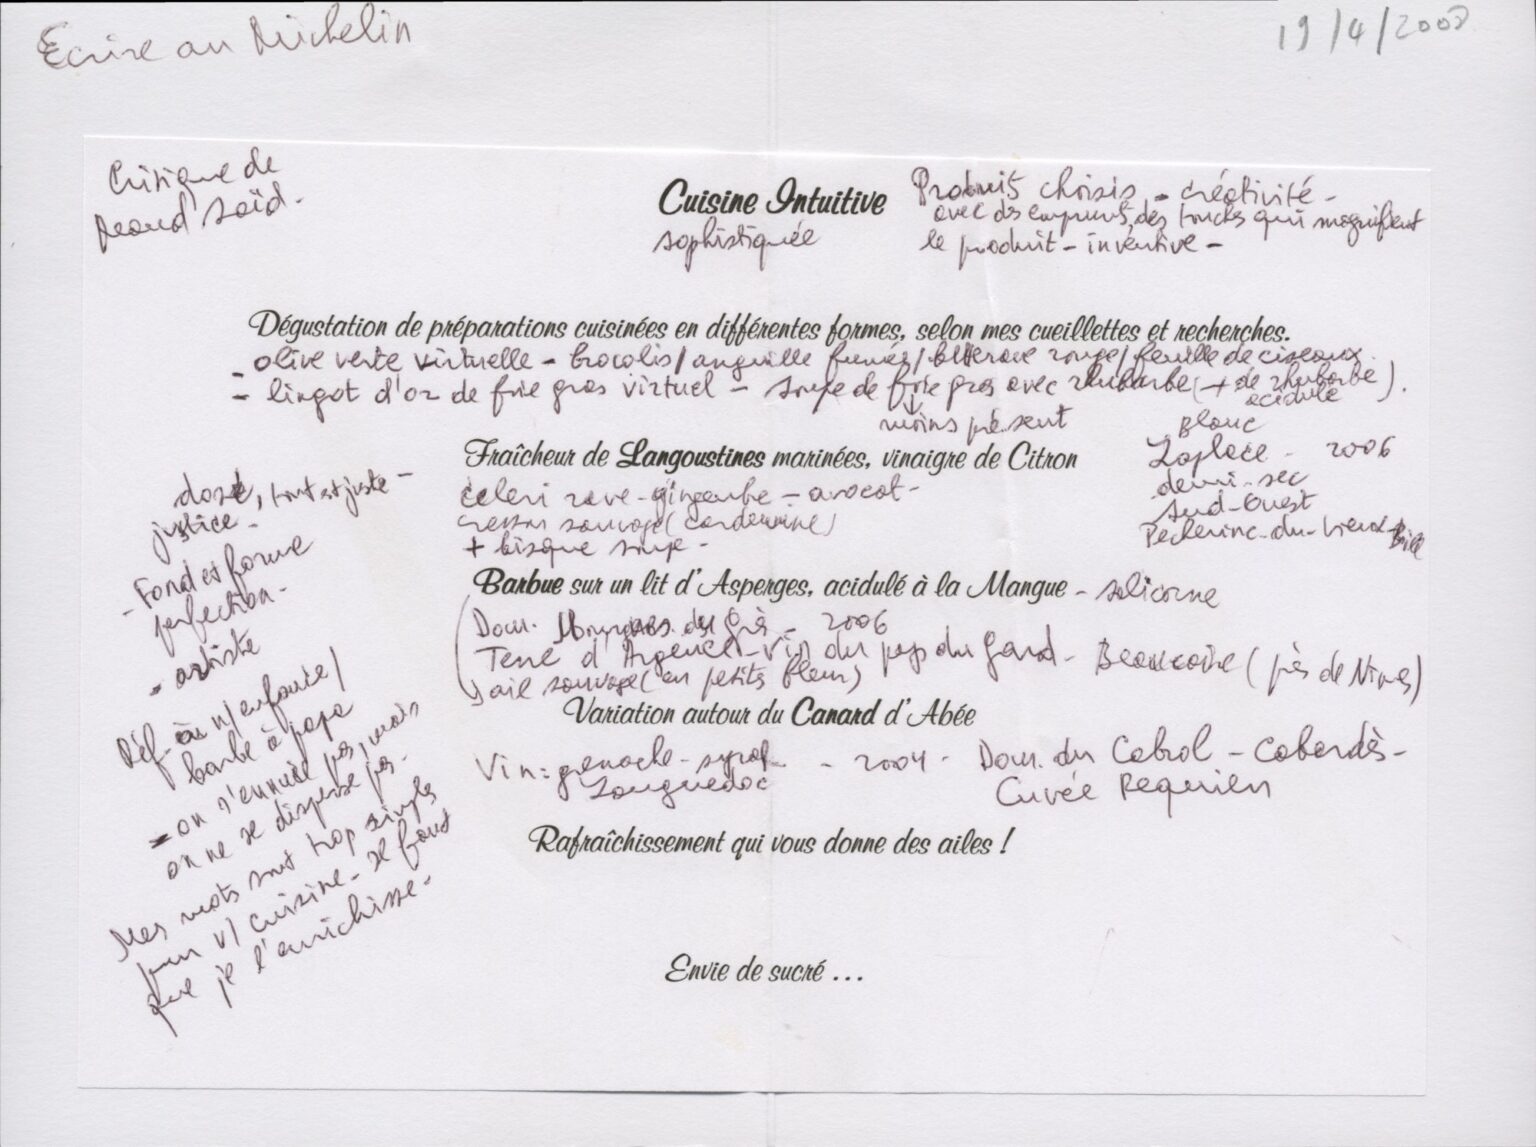 Ecrire au Michelin
19/4/2008
Critique de
Saïd.
Cuisine Intuitive
sophistiquée
Produits choisis - créativité -
avec des emprunts, des touches qui magnifient
le produit - inventive -
Dégustation de préparations cuisinées en différentes formes, selon mes cueillettes et recherches.
- olive verte virtuelle - brocolis / anguille fumée / betterave rouge / feuille de ciseaux.
- lingot d'or de foie gras virtuel - soupe de foie gras avec rhubarbe (+ de rhubarbe).
acidulé
↓
moins présent
Fraîcheur de Langoustines marinées, vinaigre de Citron
celeri rave - gingembre - avocat -
cresson sauvage (cardamine)
+ bisque soupe -
Blanc
Laplace - 2006
demi-sec
Sud-Ouest
Pacherinc-du-Vieux-Bill
Barbue sur un lit d'Asperges, acidulé à la Mangue - salicorne
Dom. des Grès - 2006
Terre d'Argence - Vin du pays du Gard - Beaucaire (près de Nimes)
ail sauvage (en petits fleurs)
Variation autour du Canard d'Abée
Vin: grenache - syrah - 2004 - Dom. du Cabrol - Cabardès -
Languedoc
Cuvée Requien
Rafraîchissement qui vous donne des ailes !
Envie de sucré ...
dosé, tout est juste -
justice -
- Fond et forme
perfection -
- artiste
Réf - n/enfance /
barbe à papa
- on s'ennuie pas, mais
on ne se disperse pas.
Mes mots sont trop simples
pour v/ cuisine - Il faut
que je l'enrichisse -